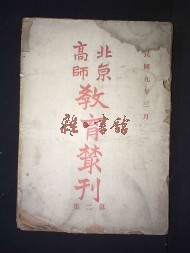 民國九年三月
北京
高師
教育叢刊
第二集